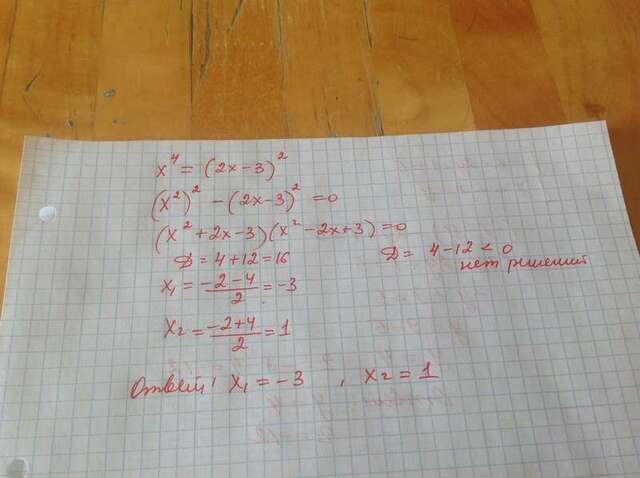 x⁴ = (2x-3)²
(x²)² - (2x-3)² = 0
(x² + 2x - 3)(x² - 2x + 3) = 0
D = 4 + 12 = 16
D = 4 - 12 < 0
нет решений
x₁ = (-2-4)/2 = -3
x₂ = (-2+4)/2 = 1
Ответ: x₁ = -3 , x₂ = 1